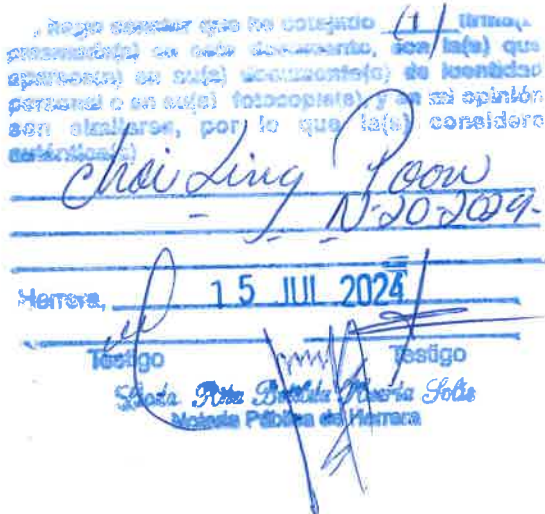 , hago constar que he cotejado (1) firma(s
plasmada(s) en este documento, son la(s) que
aparece(n) en su(s) documento(s) de identidad
personal o en su(s) fotocopia(s), y en mi opinión
son similares, por lo que la(s) considero
auténtica(s)
Choi Ling Poon
N-20-2029-
Herrera, 15 JUL 2024
Testigo Testigo
Licda. Rita Huerta Solís
Notaria Pública de Herrera